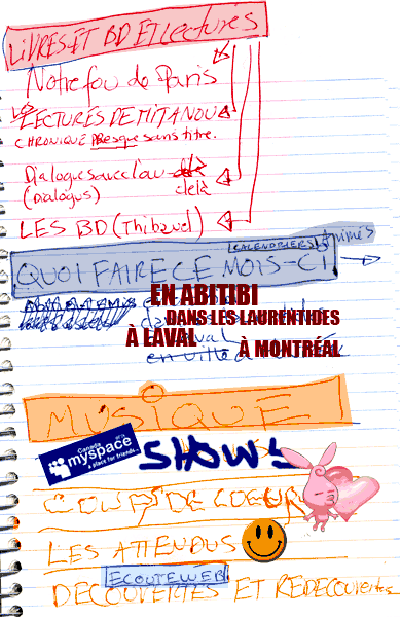 LIVRES ET BD ET Lectures
Notre fou de Paris
LES
LECTURES DE MITANOU
CHRONIQUE PRESque sans titre.
Dialogues avec l'au-delà
delà
(Dialogus)
LES BD (Thibaud)
CALENDRIERS
QUOI FAIRE CE MOIS-CI
EN ABITIBI
DANS LES LAURENTIDES
À LAVAL
À MONTRÉAL
MUSIQUE
Canada
myspace
a place for friends
SHOWS
COUP DE COEUR
LES ATTENDUS
ECOUTE WEB
DECOUVERTES ET REDECOUVertes